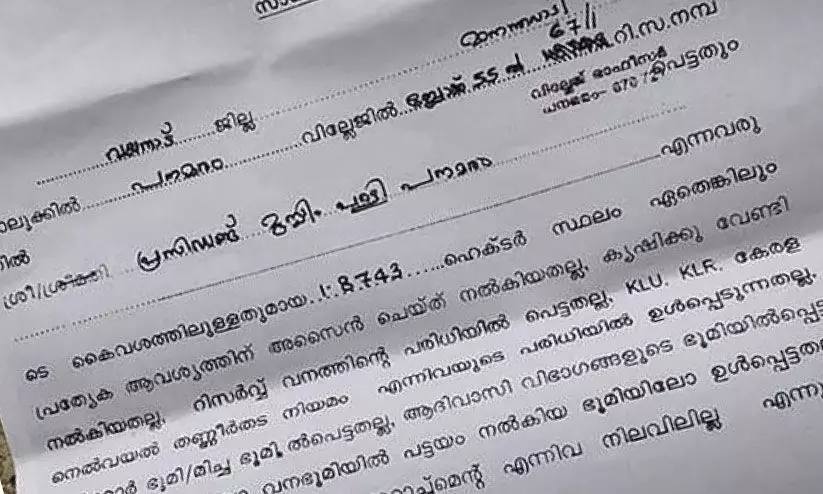 മാനന്തവാടി
67/1
വയനാട് ജില്ല
പനമരം വില്ലേജിൽ ബ്ലോക്ക് 55 ൽ റി.സ.നമ്പ
വില്ലേജ് ഓഫീസർ
പനമരം- 670 72
പെട്ടതും
ലൂക്കിൽ
ിൽ
ശ്രീ/ശ്രീമതി പ്രസിഡണ്ട് മുസ്ലിം പള്ളി പനമരം എന്നവരു
ടെ കൈവശത്തിലുള്ളതുമായ 1.8743 ഹെക്ടർ സ്ഥലം ഏതെങ്കിലും
പ്രത്യേക ആവശ്യത്തിന് അസൈൻ ചെയ്ത് നൽകിയതല്ല, കൃഷിക്കു വേണ്ടി
നൽകിയതല്ല, റിസർവ്വ് വനത്തിന്റെ പരിധിയിൽ പെട്ടതല്ല, KLU. KLR. കേരള
നെൽവയൽ തണ്ണീർതട നിയമം എന്നിവയുടെ പരിധിയിൽ ഉൾപ്പെടുന്നതല്ല,
ഭൂമി/മിച്ച ഭൂമിൽപെട്ടതല്ല, ആദിവാസി വിഭാഗങ്ങളുടെ ഭൂമിയിൽപ്പെട്ട
വനഭൂമിയിൽ പട്ടയം നൽകിയ ഭൂമിയിലോ ഉൾപ്പെട്ടത
എന്നിവ നിലവിലില്ല എന്നു